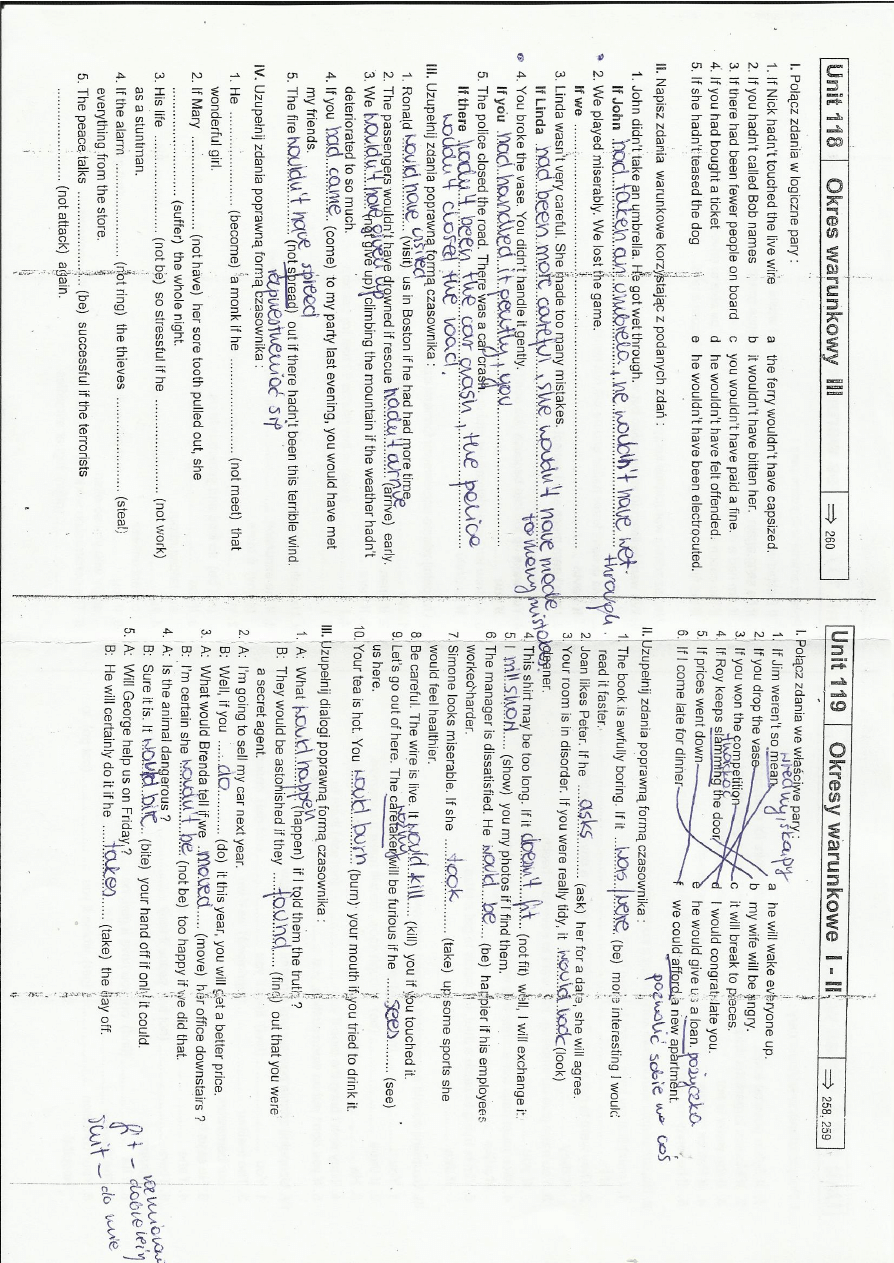 Unit 118 Okres warunkowy III ⇒ 260
I. Połącz zdania w logiczne pary :
1. If Nick hadn't touched the live wire a the ferry wouldn't have capsized.
2. If you hadn't called Bob names b it wouldn't have bitten her.
3. If there had been fewer people on board c you wouldn't have paid a fine.
4. If you had bought a ticket d he wouldn't have felt offended.
5. If she hadn't teased the dog e he wouldn't have been electrocuted.
II. Napisz zdania warunkowe korzystając z podanych zdań :
1. John didn't take an umbrella. He got wet through.
If John had taken an umbrela, he wouldn't have wet. through
2. We played miserably. We lost the game.
If we
3. Linda wasn't very careful. She made too many mistakes.
If Linda had been more careful, she wouldn't have made
to meny mistakes
4. You broke the vase. You didn't handle it gently.
If you had handled it gently, you
5. The police closed the road. There was a car crash.
If there hadn't been the car crash, the police
wouldn't closed the road.
III. Uzupełnij zdania poprawną formą czasownika :
1. Ronald would have visited (visit) us in Boston if he had had more time.
2. The passengers wouldn't have drowned if rescue hadn't arrive (arrive) early.
3. We wouldn't have given up (not give up) climbing the mountain if the weather hadn't
deteriorated to so much.
4. If you had came (come) to my party last evening, you would have met
my friends.
5. The fire wouldn't have spread (not spread) out if there hadn't been this terrible wind.
IV. Uzupełnij zdania poprawną formą czasownika :
1. He (become) a monk if he (not meet) that
wonderful girl.
2. If Mary (not have) her sore tooth pulled out, she
(suffer) the whole night.
3. His life (not be) so stressful if he (not work)
as a stuntman.
4. If the alarm (not ring) the thieves (steal)
everything from the store.
5. The peace talks (be) successful if the terrorists
(not attack) again.
Unit 119 Okresy warunkowe I - II ⇒ 258, 259
I. Połącz zdania we właściwe pary :
wredny, skąpy
1. If Jim weren't so mean a he will wake everyone up.
2. If you drop the vase b my wife will be angry.
3. If you won the competition c it will break to pieces.
trzaskać
4. If Roy keeps slamming the door d I would congratulate you.
5. If prices went down e he would give us a loan. pożyczka
6. If I come late for dinner f we could afford a new apartment.
pozwolić sobie na coś
II. Uzupełnij zdania poprawną formą czasownika :
1. The book is awfully boring. If it was/were (be) more interesting I would
read it faster.
2. Joan likes Peter. If he asks (ask) her for a date, she will agree.
3. Your room is in disorder. If you were really tidy, it would look (look)
cleaner.
4. This shirt may be too long. If it doesn't fit (not fit) well, I will exchange it.
5. I will show (show) you my photos if I find them.
6. The manager is dissatisfied. He would be (be) happier if his employees
worked harder.
7. Simone looks miserable. If she took (take) up some sports she
would feel healthier.
8. Be careful. The wire is live. It would kill (kill) you if you touched it.
9. Let's go out of here. The caretaker will be furious if he sees (see)
us here.
10. Your tea is hot. You would burn (burn) your mouth if you tried to drink it.
III. Uzupełnij dialogi poprawną formą czasownika :
1. A: What would happen (happen) if I told them the truth ?
B: They would be astonished if they found (find) out that you were
a secret agent.
2. A: I'm going to sell my car next year.
B: Well, if you do (do) it this year, you will get a better price.
3. A: What would Brenda tell if we moved (move) her office downstairs ?
B: I'm certain she wouldn't be (not be) too happy if we did that.
4. A: Is the animal dangerous ?
B: Sure it is. It would bite (bite) your hand off if only it could.
5. A: Will George help us on Friday ?
B: He will certainly do it if he takes (take) the day off.
fit –
suit – do mnie